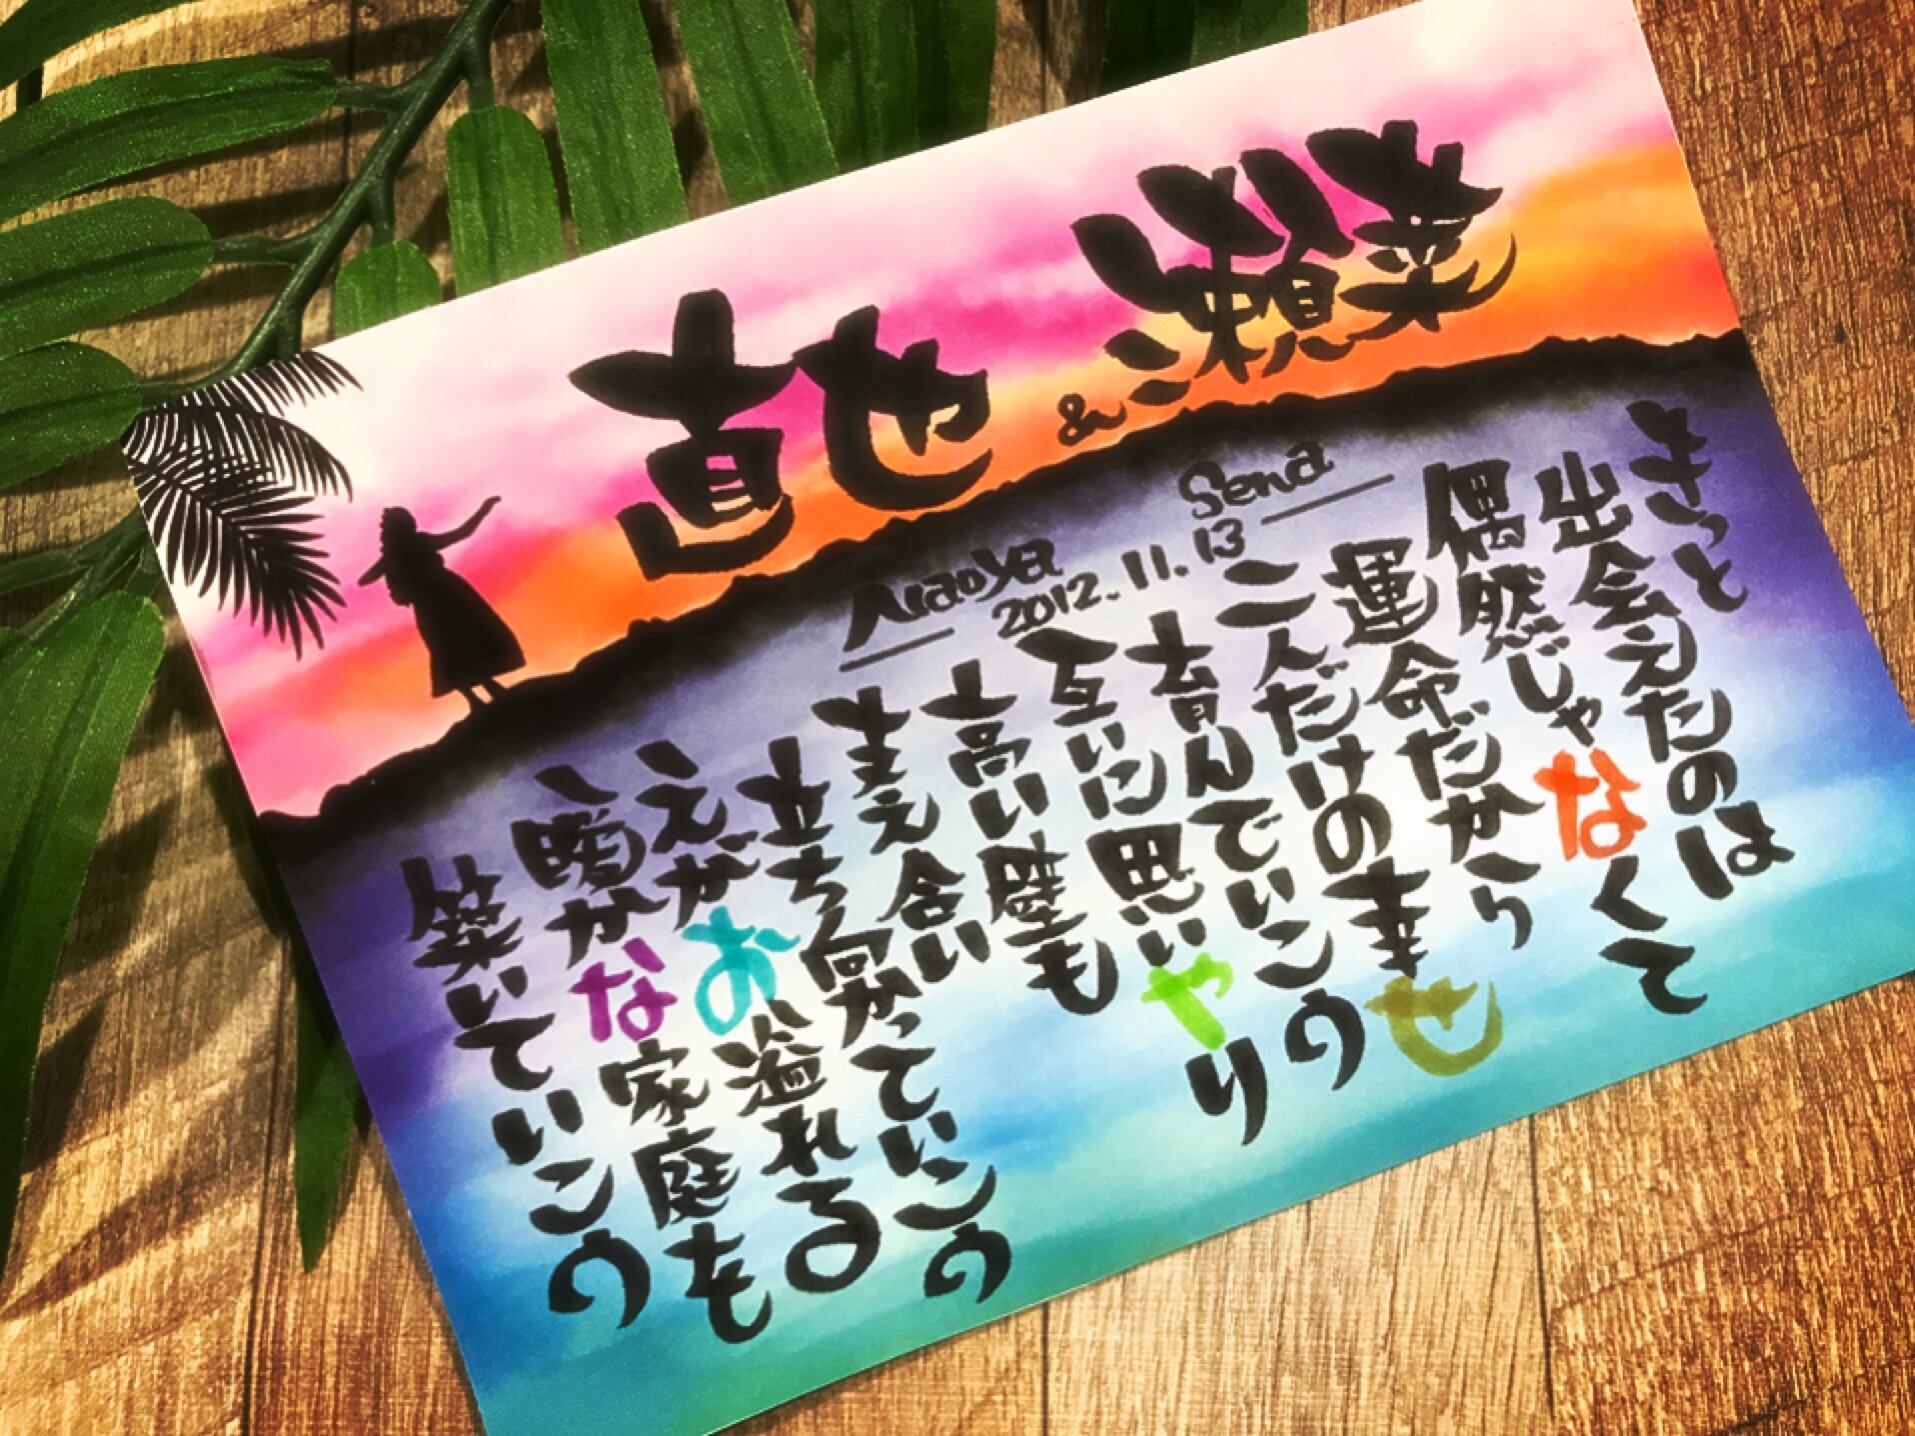 直也
&
瀬菜
Naoya
Sena
2012.11.13
きっと
出会えたのは
偶然じゃなくて
運命だから
二人だけの幸せ
育んでいこうの
互いに思いやり
高い壁も
支え合い
立ち向かっていこうの
えがお溢れる
暖かな家庭も
築いていこうの